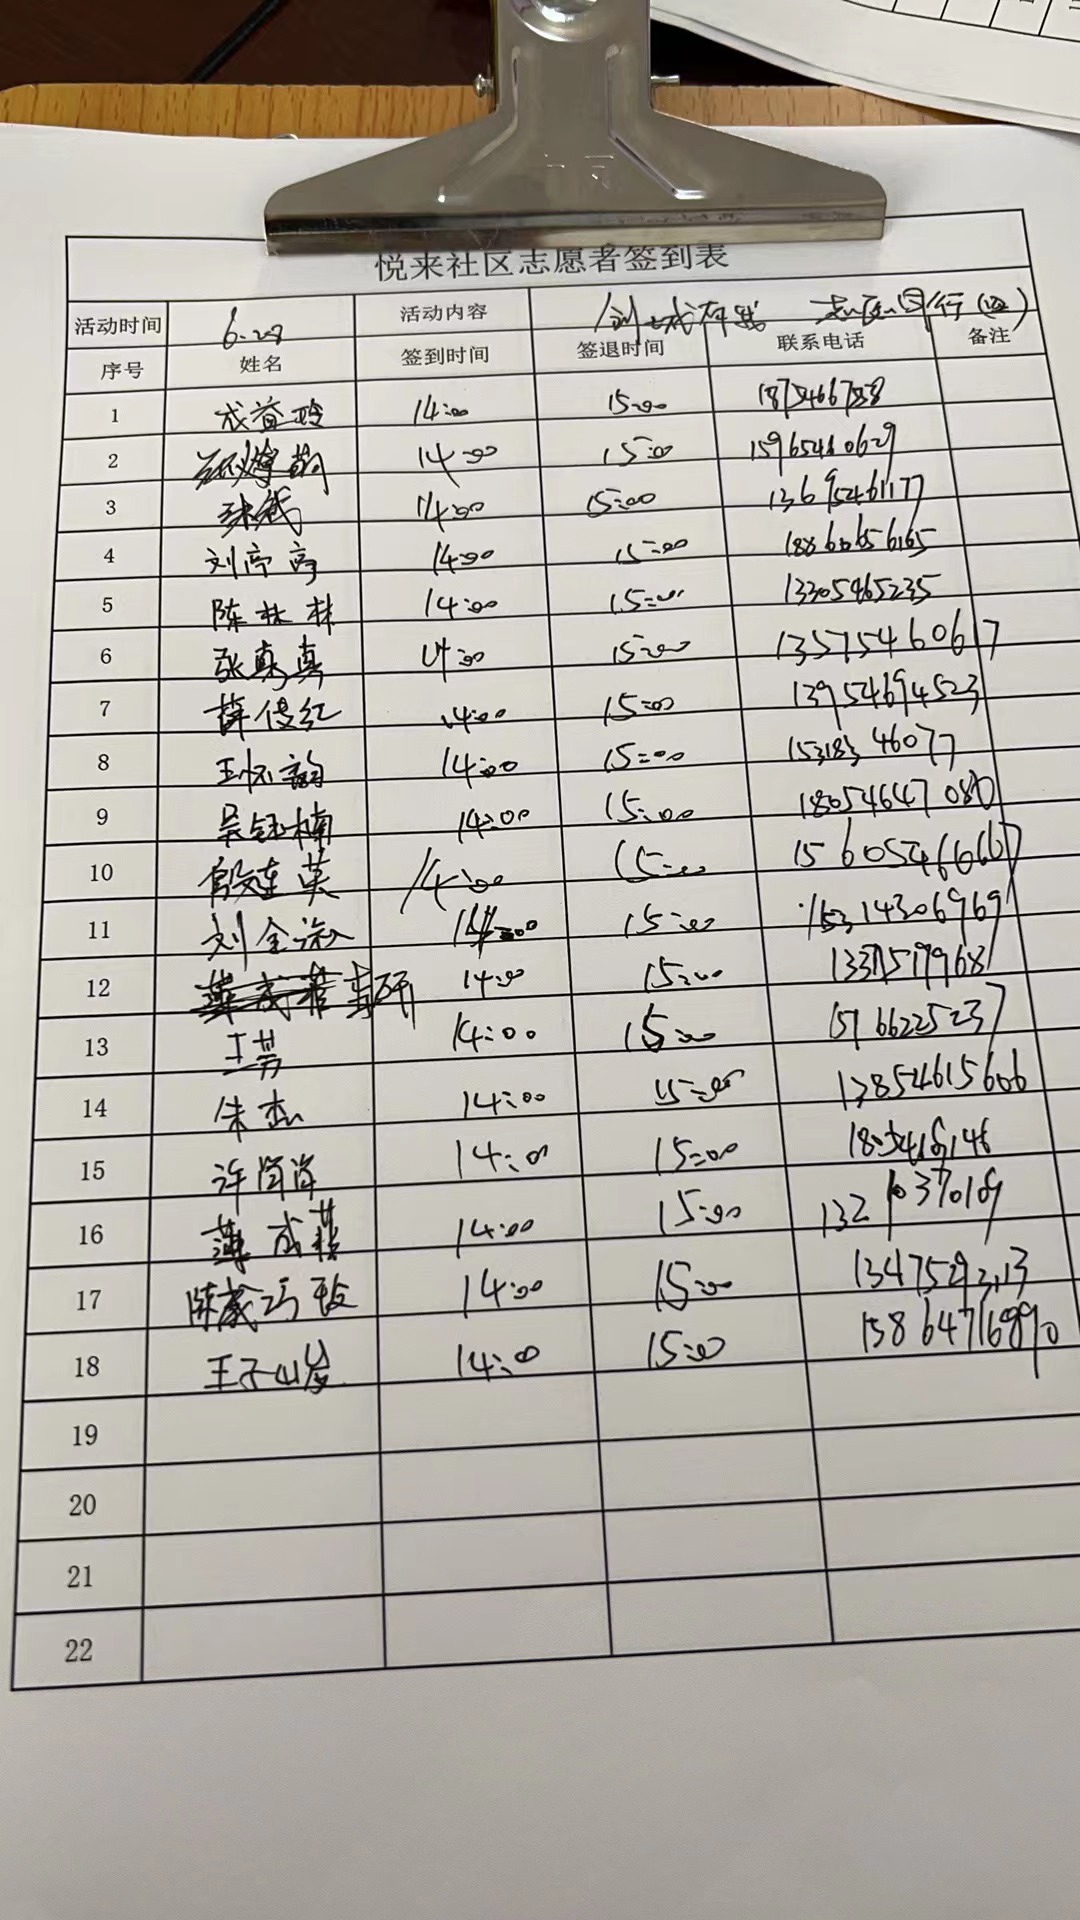 悦来社区志愿者签到表
活动时间 6.28 活动内容 创城有我 志愿同行
序号 姓名 签到时间 签退时间 联系电话 备注
1 成益玲 14:00 15:00
2 14:00 15:00 15965460629
3 14:00 15:00 13695461177
4 刘高高 14:00 15:00 18860656165
5 陈林林 14:00 15:00 13305465235
6 张真真 14:00 15:00 13575460617
7 薛传红 14:00 15:00 13954694523
8 王怀韵 14:00 15:00
9 吴钰楠 14:00 15:00 18054647080
10 殷连英 14:00 15:00 15605466667
11 刘全 14:00 15:00 15314306969
12 14:00 15:00
13 王芳 14:00 15:00
14 朱杰 14:00 15:00 13854615606
15 许肖肖 14:00 15:00
16 薄成 14:00 15:00
17 14:00 15:00
18 王子 14:00 15:00 15864716890
19
20
21
22